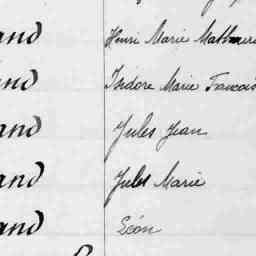 and Henri Marie Mathurin
and Isidore Marie Francois
and Jules Jean
and Jules Marie
and Léon